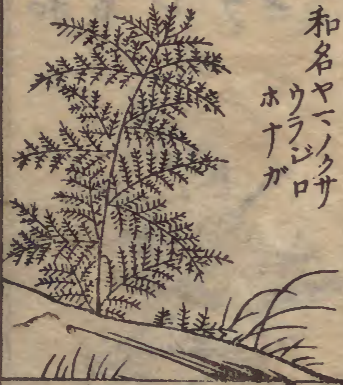 和名ヤマノクサ
ウラジロ
ホナガ